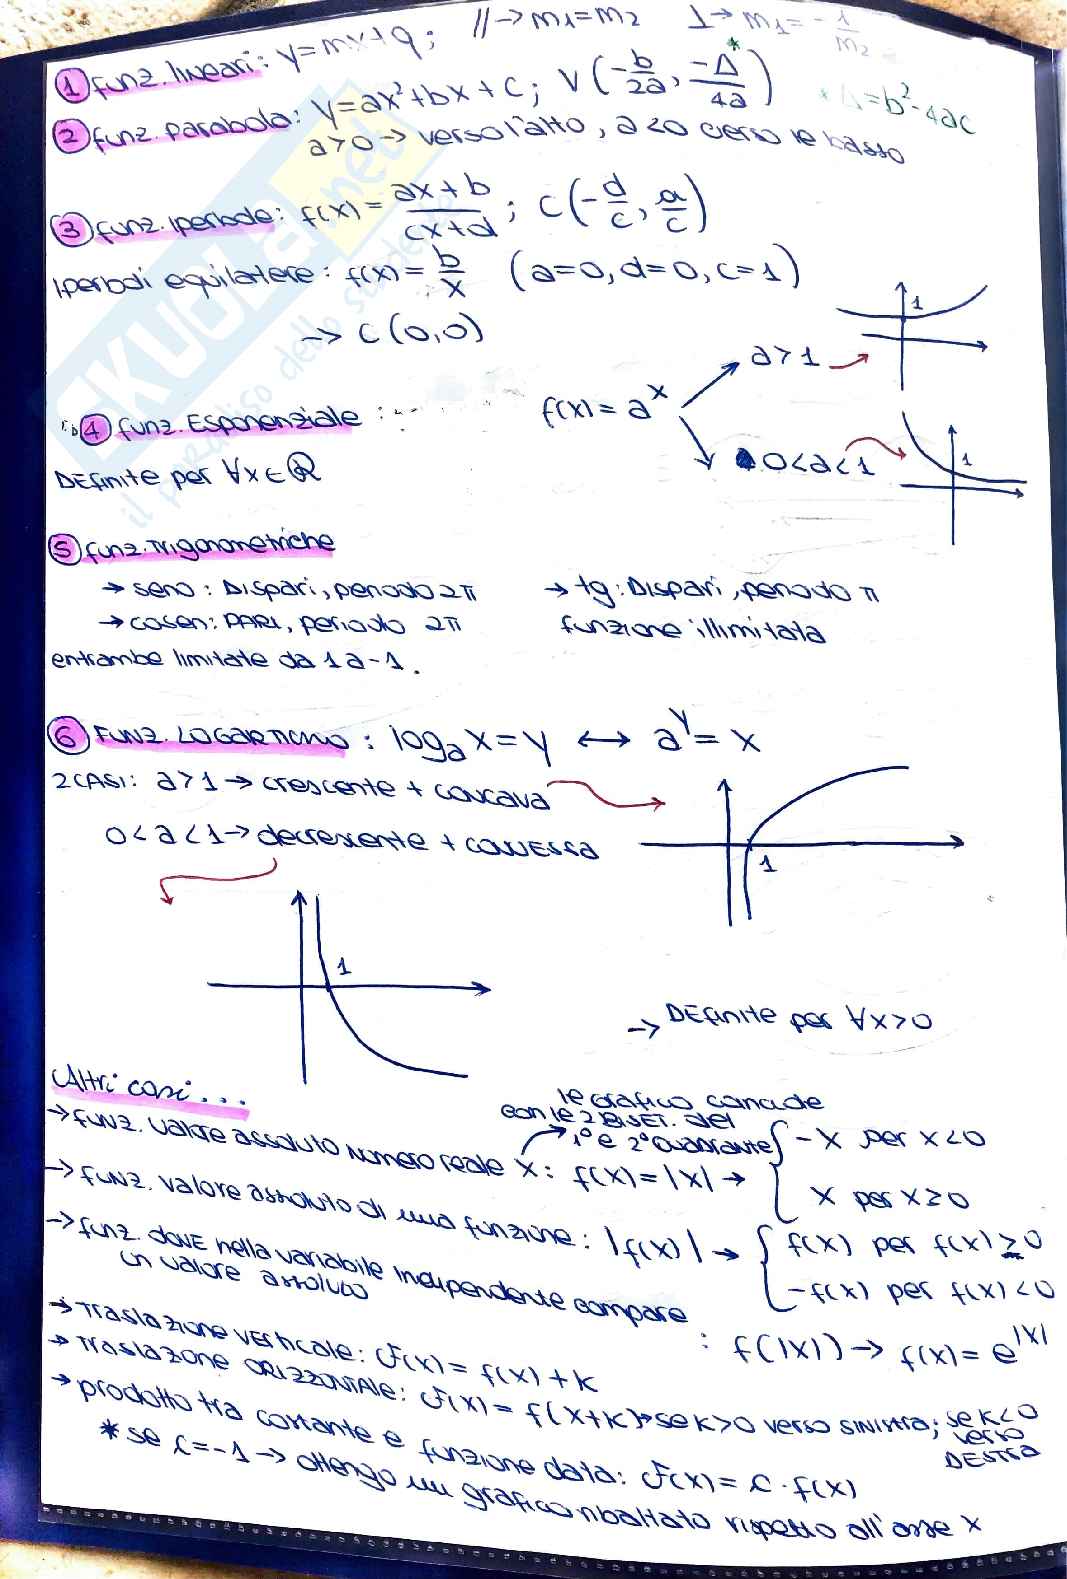 ① funz. lineari: y=mx+q; // → m₁=m₂ ⊥ → m₁=-1/m₂
② funz. parabola: y=ax²+bx+c; V(-b/2a, -Δ*/4a) *Δ=b²-4ac
a>0 → verso l'alto, a<0 verso il basso
③ funz. Iperbole: f(x)= ax+b/cx+d; C(-d/c, a/c)
Iperboli equilatere: f(x)= b/x (a=0, d=0, c=1)
→ C(0,0)
④ funz. Esponenziale: f(x)=aˣ
a>1
1
0<a<1
1
DEfinite per ∀x∈ℝ
⑤ funz. Trigonometriche
→ seno: Dispari, periodo 2π → tg: Dispari, periodo π
→ cosen: PARI, periodo 2π funzione illimitata
entrambe limitate da 1 a -1.
⑥ FUNZ. LOGARITMO: logₐx=y ↔ aʸ=x
2 CASI: a>1 → crescente + concava
0<a<1 → decrescente + convessa
1
1
→ DEfinite per ∀x>0
Altri casi...
il grafico coincide
con le 2 BISET. del
1° e 2° Quadrante
→ funz. valore assoluto numero reale x: f(x)=|x| → { -x per x<0
x per x≥0
→ funz. valore assoluto di una funzione: |f(x)| → { f(x) per f(x)≥0
-f(x) per f(x)<0
→ funz. dove nella variabile indipendente compare
un valore assoluto : f(|x|) → f(x)=e^|x|
→ Traslazione verticale: F(x)=f(x)+k
→ Traslazione ORIZZONTALE: F(x)=f(x+k) → se k>0 verso sinistra; se k<0
verso
DESTRA
→ prodotto tra costante e funzione data: F(x)=c·f(x)
* se c=-1 → ottengo un grafico ribaltato rispetto all'asse x
SKUOLA.net
il paradiso dello studente